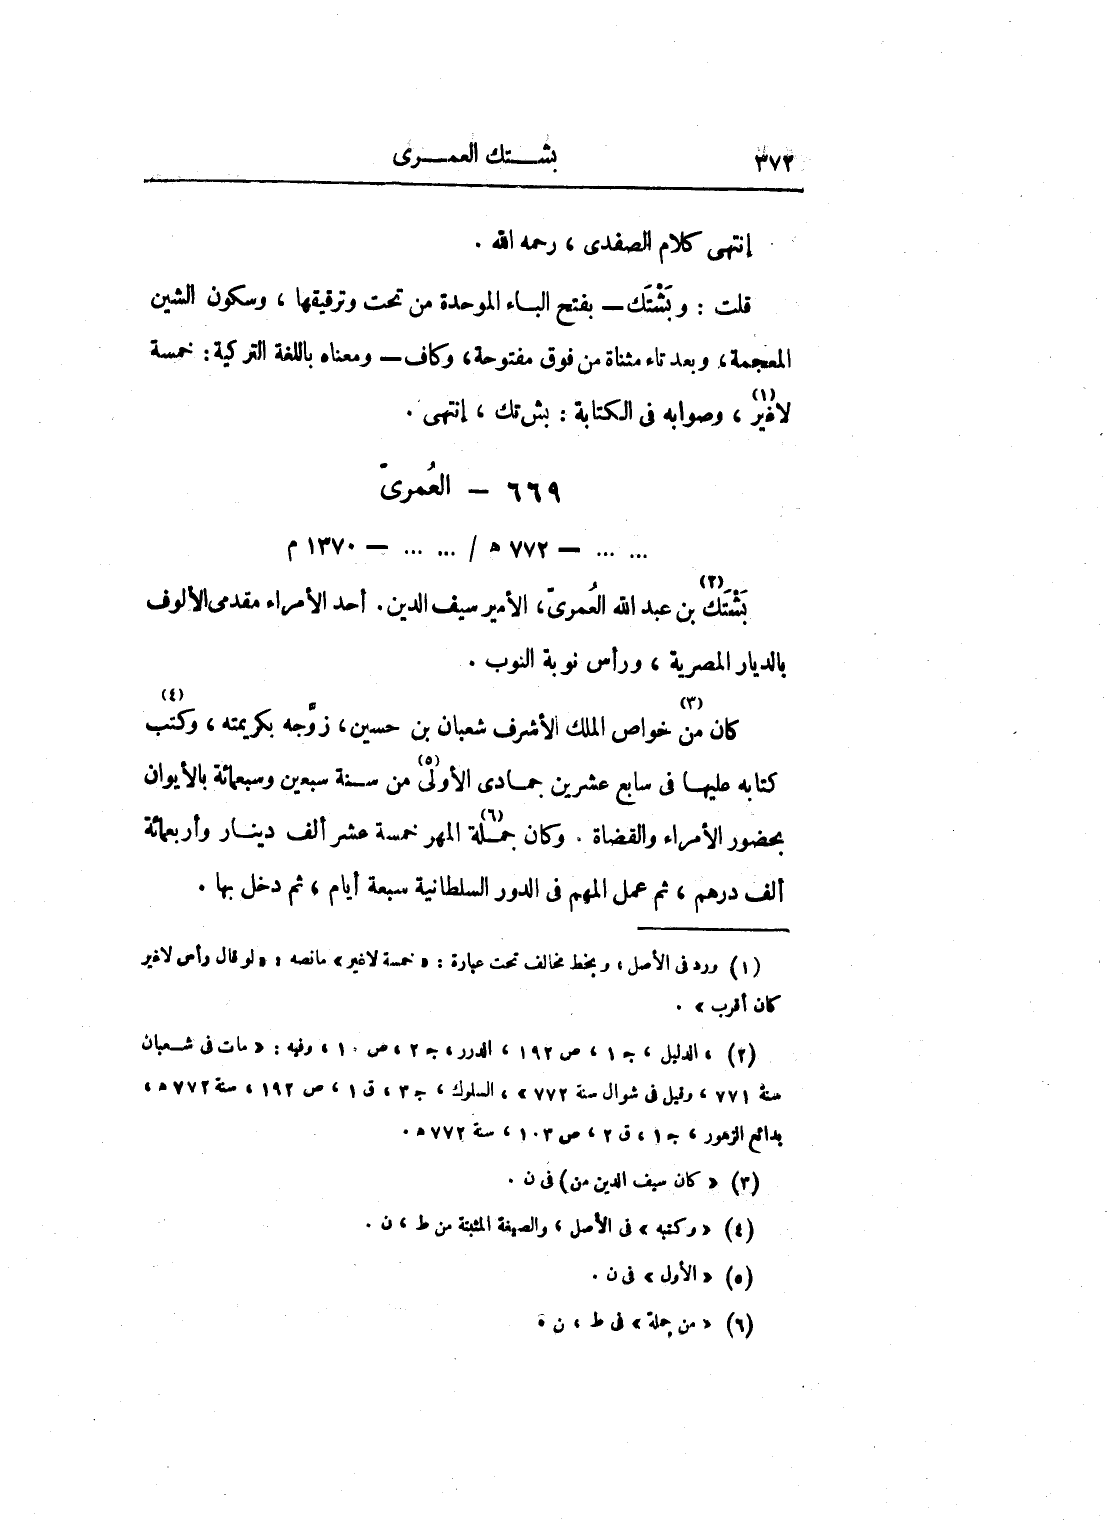 ٣٧٢
بشتك العمرى
إنتهى كلام الصفدى ، رحمه الله .
قلت : و بَشْتَك — بفتح الباء الموحدة من تحت وترقيقها ، وسكون الشين
المعجمة ، وبعد تاء مثناة من فوق مفتوحة ، وكاف — ومعناه باللغة التركية : خمسة
لا غير (١) ، وصوابه فى الكتابة : بش تك ، إنتهى .
٦٦٩ — العُمرىّ
... ... — ٧٧٢ هـ / ... ... — ١٣٧٠ م
بَشْتَك (٢) بن عبد الله العُمرىّ ، الأمير سيف الدين . أحد الأمراء مقدمى الألوف
بالديار المصرية ، ورأس نوبة النوب .
كان من (٣) خواص الملك الأشرف شعبان بن حسين ، زوَّجه بكريمته ، وكتب (٤)
كتابه عليها فى سابع عشرين جمادى الأولى (٥) من سنة سبعين وسبعمائة بالأيوان
بحضور الأمراء والقضاة . وكان جملة (٦) المهر خمسة عشر ألف دينار وأربعمائة
ألف درهم ، ثم عمل المهم فى الدور السلطانية سبعة أيام ، ثم دخل بها .
(١) ورد فى الأصل ، وبخط مخالف تحت عبارة : « خمسة لاغير » مانصه : « لو قال رأس لاغير
كان أقرب » .
(٢) ، الدليل ، جـ ١ ، ص ١٩٢ ، الدرر ، جـ ٢ ، ص ١٠ ، وفيه : « مات فى شعبان
سنة ٧٧١ ، وقيل فى شوال سنة ٧٧٢ » ، السلوك ، جـ ٣ ، ق ١ ، ص ١٩٢ ، سنة ٧٧٢ هـ ،
بدائع الزهور ، جـ ١ ، ق ٢ ، ص ١٠٣ ، سنة ٧٧٢ هـ .
(٣) « كان سيف الدين من) فى ن .
(٤) « وكتبه » فى الأصل ، والصيغة المثبتة من ط ، ن .
(٥) « الأول » فى ن .
(٦) « من جملة » فى ط ، ن .